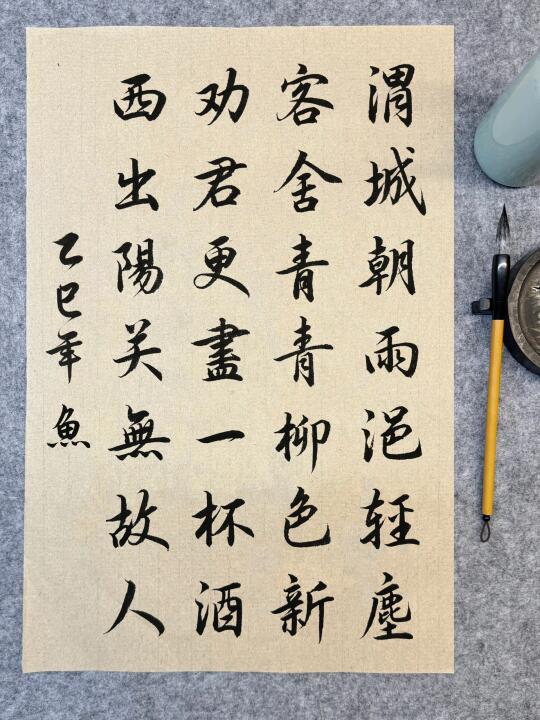 渭城朝雨浥輕塵
客舍青青柳色新
劝君更盡一杯酒
西出陽关無故人
乙巳年魚